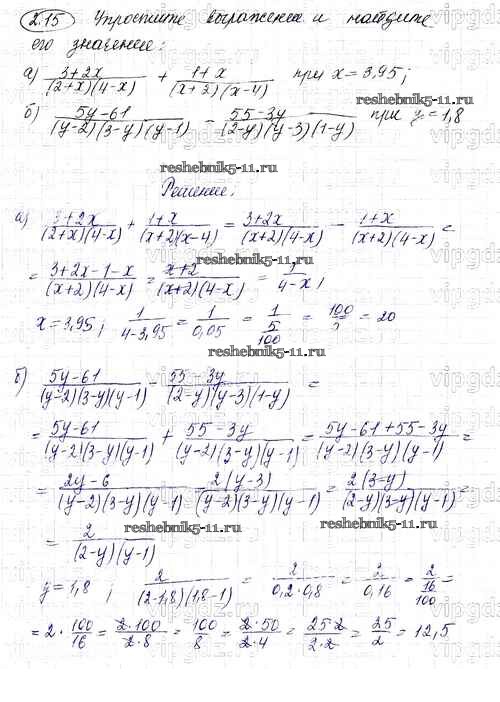 2.15 Упростите выражение и найдите
его значение:
а) (3+2x)/((2+x)(4-x)) + (1+x)/((x+2)(x-4)) при x=3,95;
б) (5y-61)/((y-2)(3-y)(y-1)) - (55-3y)/((2-y)(y-3)(1-y)) при y=1,8
reshebnik5-11.ru
reshebnik5-11.ru
Решение.
а) (3+2x)/((2+x)(4-x)) + (1+x)/((x+2)(x-4)) = (3+2x)/((x+2)(4-x)) - (1+x)/((x+2)(4-x)) =
reshebnik5-11.ru
= (3+2x-1-x)/((x+2)(4-x)) = (x+2)/((x+2)(4-x)) = 1/(4-x);
x=3,95; 1/(4-3,95) = 1/0,05 = 1/(5/100) = 100/5 = 20
reshebnik5-11.ru
б) (5y-61)/((y-2)(3-y)(y-1)) - (55-3y)/((2-y)(y-3)(1-y)) =
= (5y-61)/((y-2)(3-y)(y-1)) + (55-3y)/((y-2)(3-y)(y-1)) = (5y-61+55-3y)/((y-2)(3-y)(y-1)) =
= (2y-6)/((y-2)(3-y)(y-1)) = 2(y-3)/((y-2)(3-y)(y-1)) = 2(3-y)/((2-y)(3-y)(y-1)) =
reshebnik5-11.ru
reshebnik5-11.ru
= 2/((2-y)(y-1))
y=1,8; 2/((2-1,8)(1,8-1)) = 2/(0,2·0,8) = 2/0,16 = 2/(16/100) =
= 2·100/16 = (2·100)/(2·8) = 100/8 = (2·50)/(2·4) = (25·2)/(2·2) = 25/2 = 12,5
reshebnik5-11.ru
vipgdz.ru